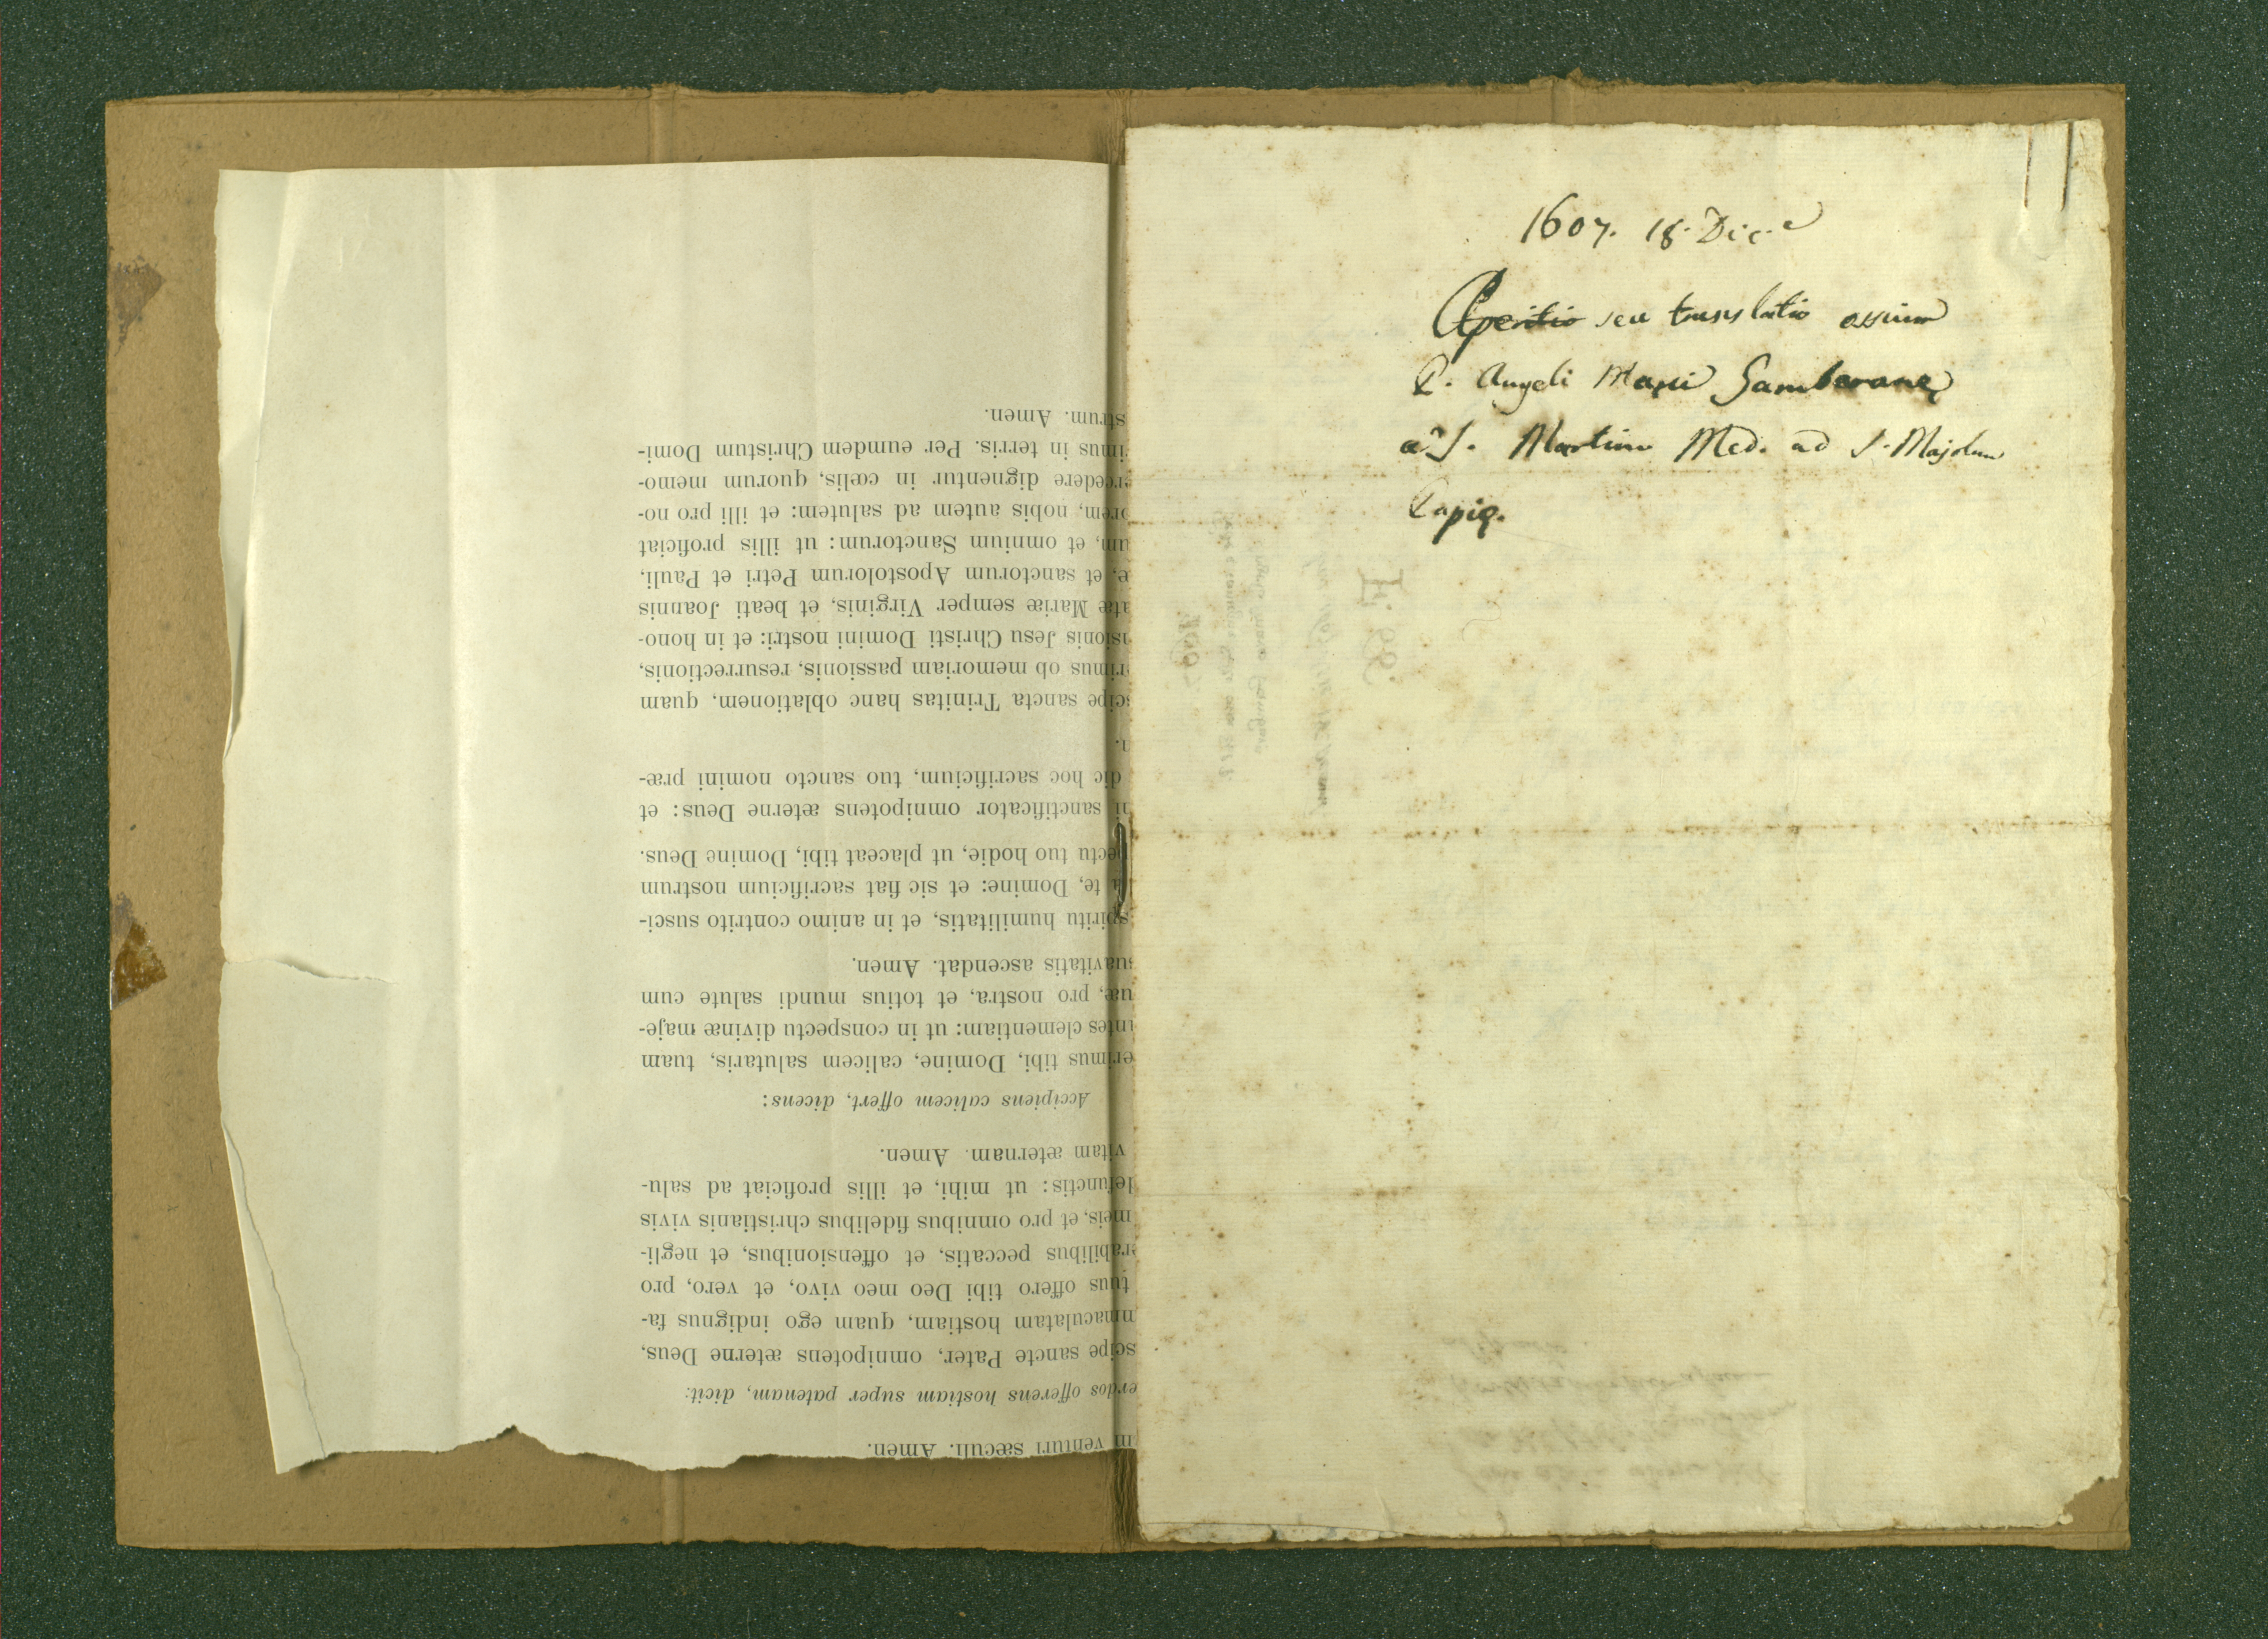 m venturi sæculi. Amen.
erdos offerens hostiam super patenam, dicit:
scipe sancte Pater, omnipotens æterne Deus,
mmaculatam hostiam, quam ego indignus fa-
tuus offero tibi Deo meo vivo, et vero, pro
erabilibus peccatis, et offensionibus, et negli-
meis, et pro omnibus fidelibus christianis vivis
defunctis: ut mihi, et illis proficiat ad salu-
vitam æternam. Amen.
Accipiens calicem offert, dicens:
erimus tibi, Domine, calicem salutaris, tuam
ntes clementiam: ut in conspectu divinæ maje-
uæ, pro nostra, et totius mundi salute cum
suavitatis ascendat. Amen.
spiritu humilitatis, et in animo contrito susci-
a te, Domine: et sic fiat sacrificium nostrum
pectu tuo hodie, ut placeat tibi, Domine Deus.
ni sanctificator omnipotens æterne Deus: et
dic hoc sacrificium, tuo sancto nomini præ-
n.
scipe sancta Trinitas hanc oblationem, quam
erimus ob memoriam passionis, resurrectionis,
nsionis Jesu Christi Domini nostri: et in hono-
atæ Mariæ semper Virginis, et beati Joannis
æ, et sanctorum Apostolorum Petri et Pauli,
um, et omnium Sanctorum: ut illis proficiat
orem, nobis autem ad salutem: et illi pro no-
ercedere dignentur in cœlis, quorum memo-
imus in terris. Per eumdem Christum Domi-
strum. Amen.
1607. 18. Dic.e
Apertio seu translatio ossium
P. Angeli Marci Gambaranę
a S. Martino Med. ad S. Majolum
Papię.